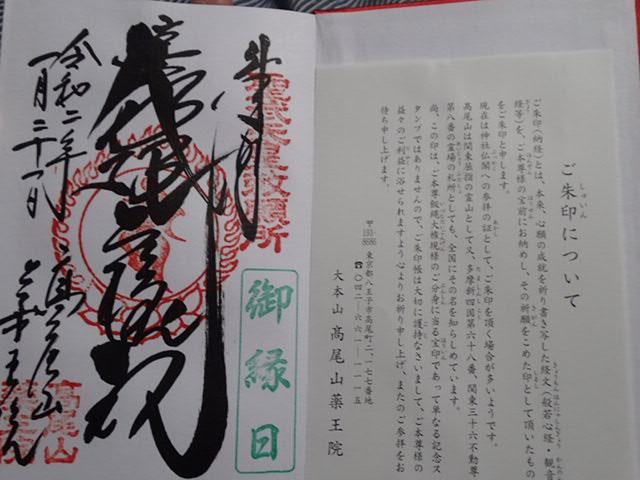 ご朱印について
しゅいん
ご朱印(納経)とは、本来、心願の成就を祈り書き写した経文(般若心経・観音
経等)を、ご本尊様の宝前にお納めし、その祈願をこめた印として頂いたもの
をご朱印と申します。
現在は神社仏閣への参拝の証として、ご朱印を頂く場合が多いようです。
高尾山は関東屈指の霊山として又、多摩新四国第六十八番、関東三十六不動尊
第八番の霊場の札所としても、全国にその名を知らしめています。
尚、この印は、ご本尊飯縄大権現様のご分身に当る宝印であって単なる記念ス
タンプではありませんので、ご朱印帳は大切に護持なさいまして、ご本尊様の
益々のご利益に浴せられますよう心よりお祈り申し上げ、またのご参拝をお
待ち申し上げます。
〒193-8686
東京都八王子市高尾町二一七七番地
☎〇四二-六六一-一一一五
大本山 髙尾山薬王院
聖武天皇敕願所
御縁日
飯縄大権現
令和二年
一月二十一日
高尾山